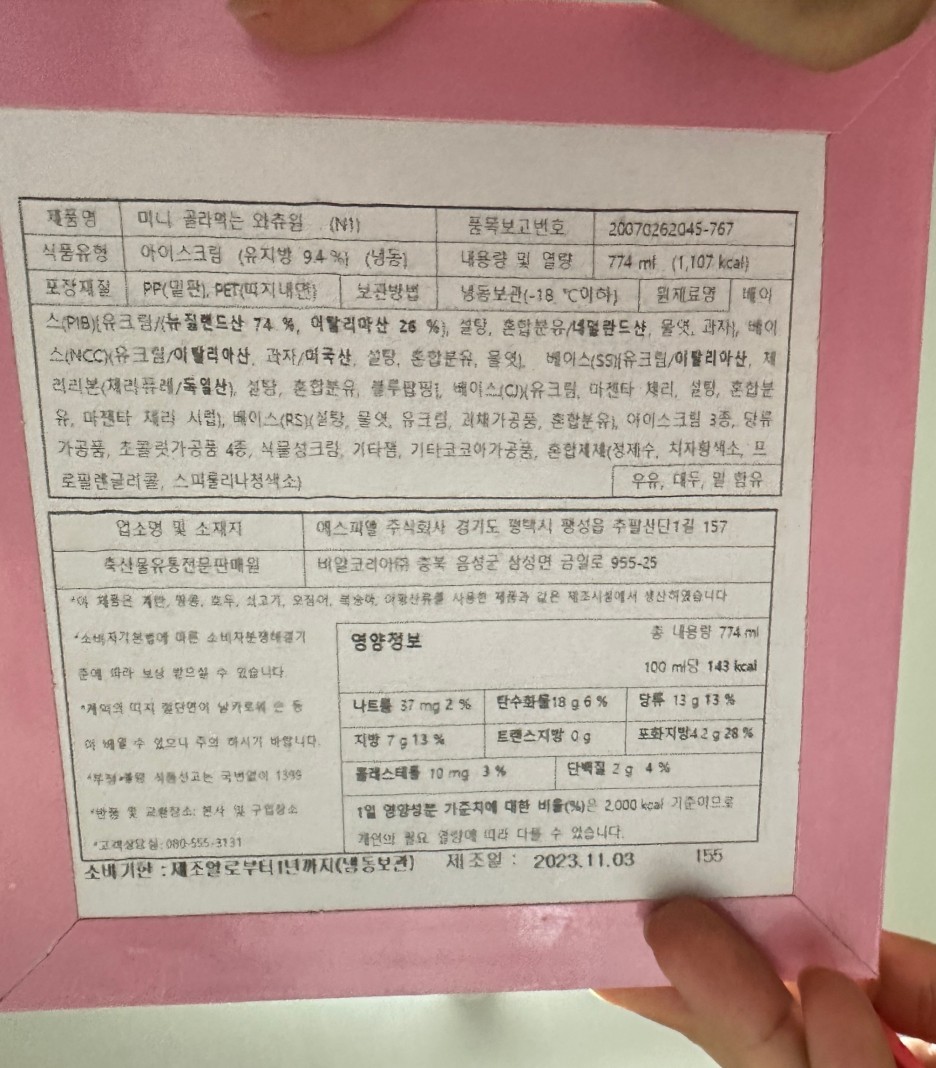 제품명 미니 골라먹는 와츄원 (N1) 품목보고번호 20070262045-767
식품유형 아이스크림 (유지방 9.4 %) (냉동) 내용량 및 열량 774 ml (1,107 kcal)
포장재질 PP(밑판), PET(띠지내면) 보관방법 냉동보관(-18 ℃이하) 원재료명 베이
스(PIB){유크림/(뉴질랜드산 74 %, 이탈리아산 26 %), 설탕, 혼합분유/네덜란드산, 물엿, 과자}, 베이
스(NCC){유크림/이탈리아산, 과자/미국산, 설탕, 혼합분유, 물엿}, 베이스(SS){유크림/이탈리아산, 체
리리본(체리퓨레/독일산), 설탕, 혼합분유, 블루탑핑}, 베이스(CJ){유크림, 마젠타 체리, 설탕, 혼합분
유, 마젠타 체리 시럽}, 베이스(RS){설탕, 물엿, 유크림, 과채가공품, 혼합분유}, 아이스크림 3종, 당류
가공품, 초콜릿가공품 4종, 식물성크림, 기타잼, 기타코코아가공품, 혼합제제(정제수, 치자황색소, 프
로필렌글리콜, 스피룰리나청색소)
우유, 대두, 밀 함유
업소명 및 소재지 에스피엘 주식회사 경기도 평택시 팽성읍 추팔산단1길 157
축산물유통전문판매원 비알코리아㈜ 충북 음성군 삼성면 금일로 955-25
*이 제품은 계란, 땅콩, 호두, 쇠고기, 오징어, 복숭아, 아황산류를 사용한 제품과 같은 제조시설에서 생산하였습니다
*소비자기본법에 따른 소비자분쟁해결기
준에 따라 보상 받으실 수 있습니다
*케익의 띠지 절단면이 날카로워 손 등
이 베일 수 있으니 주의 하시기 바랍니다.
*부정•불량 식품신고는 국번없이 1399
*반품 및 교환장소: 본사 및 구입장소
*고객상담실: 080-555-3131
영양정보 총 내용량 774 ml
100 ml당 143 kcal
나트륨 37 mg 2 % 탄수화물18 g 6 % 당류 13 g 13 %
지방 7 g 13 % 트랜스지방 0 g 포화지방4.2 g 28 %
콜레스테롤 10 mg 3 % 단백질 2 g 4 %
1일 영양성분 기준치에 대한 비율(%)은 2,000 kcal 기준이므로
개인의 필요 열량에 따라 다를 수 있습니다.
소비기한 : 제조일로부터1년까지(냉동보관) 제조일 : 2023.11.03 155